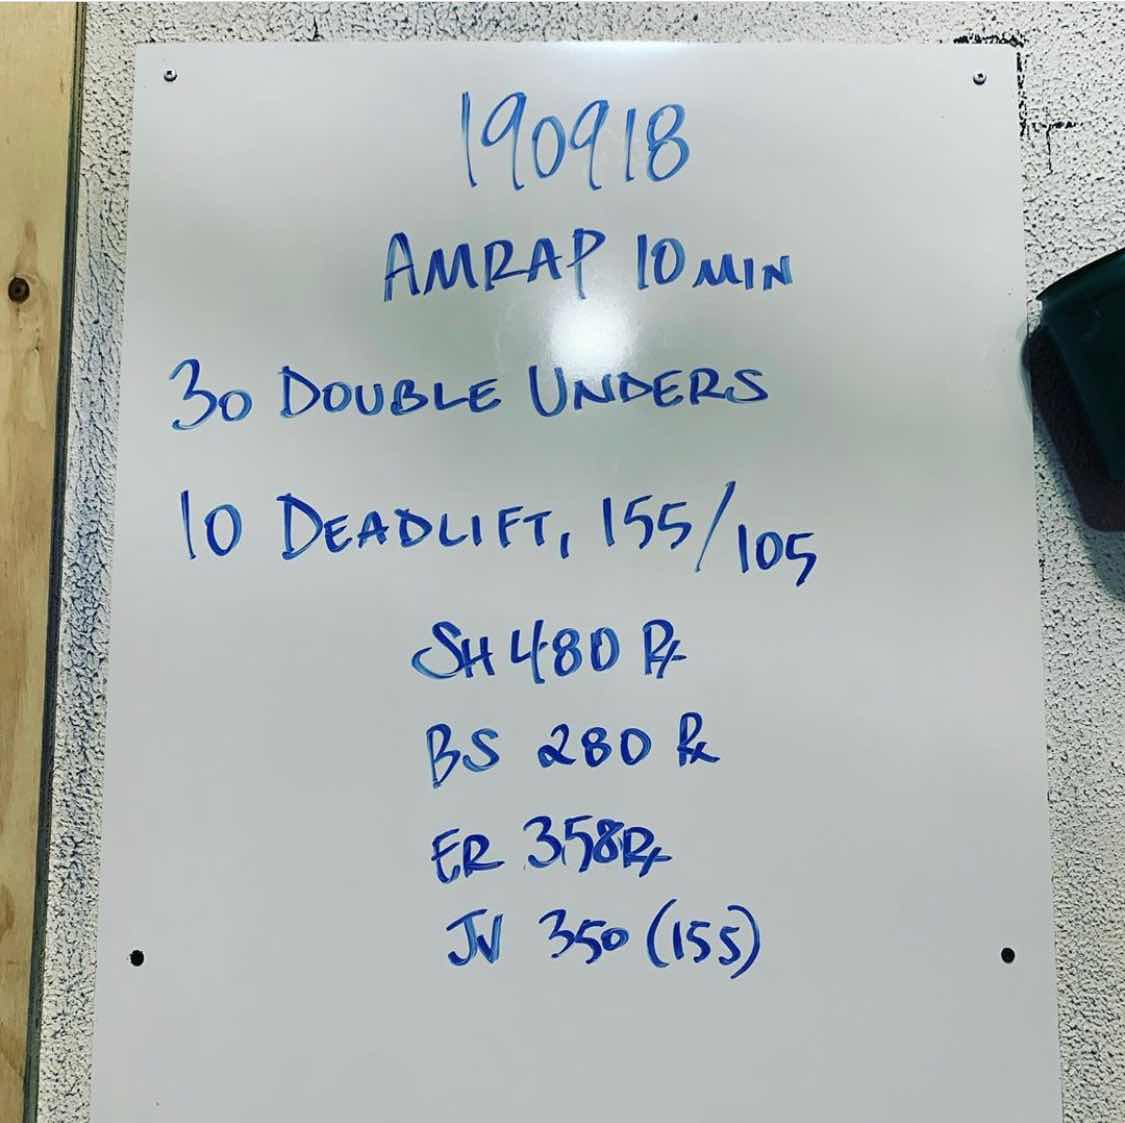 190918
AMRAP 10 MIN
30 DOUBLE UNDERS
10 DEADLIFT, 155/105
SH 480 Rx
BS 280 Rx
ER 358 Rx
JV 350 (155)